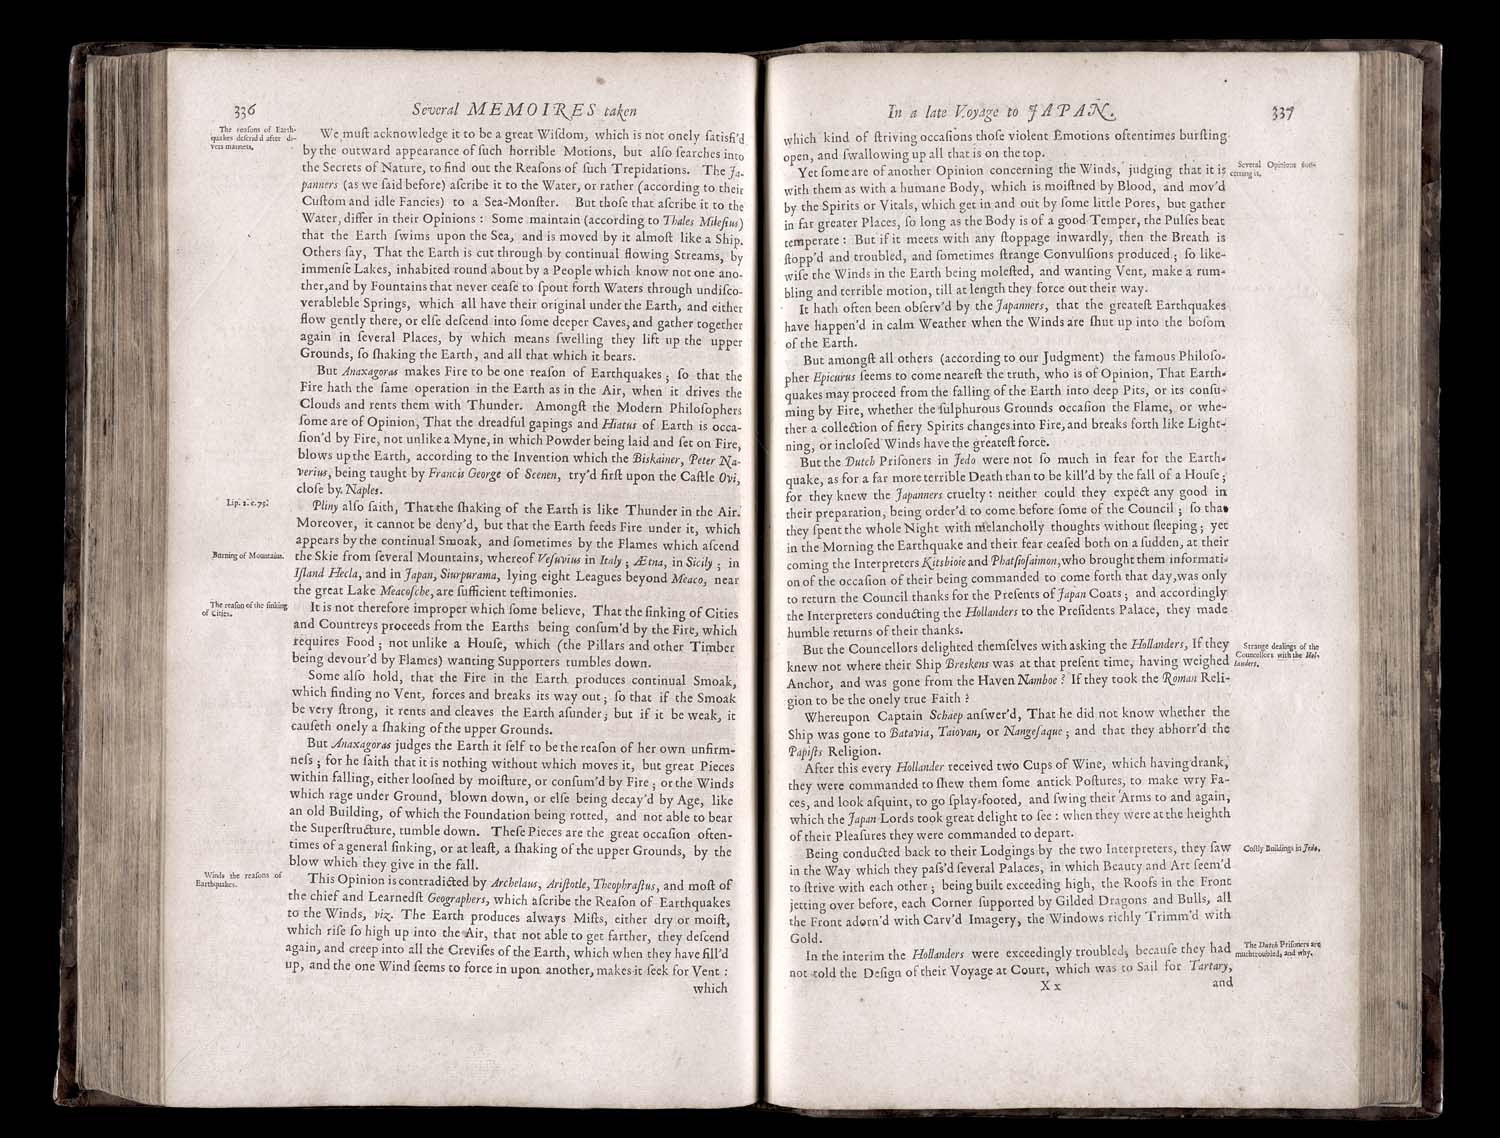 336
Several MEMOIRES taken
The reasons of Earth-
quakes describ'd after di-
vers manners.
We muſt acknowledge it to be a great Wiſdom, which is not onely ſatisfi'd
by the outward appearance of ſuch horrible Motions, but alſo ſearches into
the Secrets of Nature, to find out the Reaſons of ſuch Trepidations. The Ja-
panners (as we ſaid before) aſcribe it to the Water, or rather (according to their
Cuſtom and idle Fancies) to a Sea-Monſter. But thoſe that aſcribe it to the
Water, differ in their Opinions : Some maintain (according to Thales Mileſius)
that the Earth ſwims upon the Sea, and is moved by it almoſt like a Ship.
Others ſay, That the Earth is cut through by continual flowing Streams, by
immenſe Lakes, inhabited round about by a People which know not one ano-
ther,and by Fountains that never ceaſe to ſpout forth Waters through undiſco-
verableble Springs, which all have their original under the Earth, and either
flow gently there, or elſe deſcend into ſome deeper Caves, and gather together
again in ſeveral Places, by which means ſwelling they lift up the upper
Grounds, ſo ſhaking the Earth, and all that which it bears.
But Anaxagoras makes Fire to be one reaſon of Earthquakes ; ſo that the
Fire hath the ſame operation in the Earth as in the Air, when it drives the
Clouds and rents them with Thunder. Amongſt the Modern Philoſophers
ſome are of Opinion, That the dreadful gapings and Hiatus of Earth is occa-
ſion'd by Fire, not unlike a Myne, in which Powder being laid and ſet on Fire,
blows up the Earth, according to the Invention which the Biskainer, Peter Na-
verius, being taught by Francis George of Seenen, try'd firſt upon the Caſtle Ovi,
cloſe by Naples.
Lip. 2. c. 79.
Pliny alſo ſaith, That the ſhaking of the Earth is like Thunder in the Air.
Moreover, it cannot be deny'd, but that the Earth feeds Fire under it, which
appears by the continual Smoak, and ſometimes by the Flames which aſcend
Burning of Mountains.
the Skie from ſeveral Mountains, whereof Veſuvius in Italy ; Ætna, in Sicily ; in
Iſland Hecla, and in Japan, Siurpurama, lying eight Leagues beyond Meaco, near
the great Lake Meacoſche, are ſufficient teſtimonies.
The reaſon of the ſinking
of Cities.
It is not therefore improper which ſome believe, That the ſinking of Cities
and Countreys proceeds from the Earths being conſum'd by the Fire, which
requires Food ; not unlike a Houſe, which (the Pillars and other Timber
being devour'd by Flames) wanting Supporters tumbles down.
Some alſo hold, that the Fire in the Earth produces continual Smoak,
which finding no Vent, forces and breaks its way out ; ſo that if the Smoak
be very ſtrong, it rents and cleaves the Earth aſunder ; but if it be weak, it
cauſeth onely a ſhaking of the upper Grounds.
But Anaxagoras judges the Earth it ſelf to be the reaſon of her own unfirm-
neſs ; for he ſaith that it is nothing without which moves it, but great Pieces
within falling, either looſned by moiſture, or conſum'd by Fire ; or the Winds
which rage under Ground, blown down, or elſe being decay'd by Age, like
an old Building, of which the Foundation being rotted, and not able to bear
the Superſtructure, tumble down. Theſe Pieces are the great occaſion often-
times of a general ſinking, or at leaſt, a ſhaking of the upper Grounds, by the
blow which they give in the fall.
Winds the reaſons of
Earthquakes.
This Opinion is contradicted by Archelaus, Ariſtotle, Theophraſtus, and moſt of
the chief and Learnedſt Geographers, which aſcribe the Reaſon of Earthquakes
to the Winds, viz. The Earth produces always Miſts, either dry or moiſt,
which riſe ſo high up into the Air, that not able to get farther, they deſcend
again, and creep into all the Creviſes of the Earth, which when they have fill'd
up, and the one Wind ſeems to force in upon another, makes it ſeek for Vent :
which
In a late Voyage to JAPAN.
337
which kind of ſtriving occaſions thoſe violent Emotions oftentimes burſting
open, and ſwallowing up all that is on the top.
Several Opinions con-
cerning it.
Yet ſome are of another Opinion concerning the Winds, judging that it is
with them as with a humane Body, which is moiſtned by Blood, and mov'd
by the Spirits or Vitals, which get in and out by ſome little Pores, but gather
in far greater Places, ſo long as the Body is of a good Temper, the Pulſes beat
temperate : But if it meets with any ſtoppage inwardly, then the Breath is
ſtopp'd and troubled, and ſometimes ſtrange Convulſions produced ; ſo like-
wiſe the Winds in the Earth being moleſted, and wanting Vent, make a rum-
bling and terrible motion, till at length they force out their way.
It hath often been obſerv'd by the Japanners, that the greateſt Earthquakes
have happen'd in calm Weather when the Winds are ſhut up into the boſom
of the Earth.
But amongſt all others (according to our Judgment) the famous Philoſo-
pher Epicurus ſeems to come neareſt the truth, who is of Opinion, That Earth-
quakes may proceed from the falling of the Earth into deep Pits, or its conſu-
ming by Fire, whether the ſulphurous Grounds occaſion the Flame, or whe-
ther a collection of fiery Spirits changes into Fire, and breaks forth like Light-
ning, or incloſed Winds have the greateſt force.
But the Dutch Priſoners in Jedo were not ſo much in fear for the Earth-
quake, as for a far more terrible Death than to be kill'd by the fall of a Houſe ;
for they knew the Japanners cruelty : neither could they expect any good in
their preparation, being order'd to come before ſome of the Council ; ſo that
they ſpent the whole Night with melancholly thoughts without ſleeping ; yet
in the Morning the Earthquake and their fear ceaſed both on a ſudden, at their
coming the Interpreters Kitsbioie and Phatſioſaimon,who brought them informati-
on of the occaſion of their being commanded to come forth that day,was only
to return the Council thanks for the Preſents of Japan Coats ; and accordingly
the Interpreters conducting the Hollanders to the Preſidents Palace, they made
humble returns of their thanks.
Strange dealings of the
Councellors with the Hol-
landers.
But the Councellors delighted themſelves with asking the Hollanders, If they
knew not where their Ship Breskens was at that preſent time, having weighed
Anchor, and was gone from the Haven Namboe ? If they took the Roman Reli-
gion to be the onely true Faith ?
Whereupon Captain Schaep anſwer'd, That he did not know whether the
Ship was gone to Batavia, Taiovan, or Nangeſaque ; and that they abhorr'd the
Papiſts Religion.
After this every Hollander received two Cups of Wine, which having drank,
they were commanded to ſhew them ſome antick Poſtures, to make wry Fa-
ces, and look aſquint, to go ſplay-footed, and ſwing their Arms to and again,
which the Japan Lords took great delight to ſee : when they were at the heighth
of their Pleaſures they were commanded to depart.
Coſtly Buildings in Jedo.
Being conducted back to their Lodgings by the two Interpreters, they ſaw
in the Way which they paſs'd ſeveral Palaces, in which Beauty and Art ſeem'd
to ſtrive with each other ; being built exceeding high, the Roofs in the Front
jetting over before, each Corner ſupported by Gilded Dragons and Bulls, all
the Front adorn'd with Carv'd Imagery, the Windows richly Trimm'd with
Gold.
The Dutch Priſoners are
much troubled, and why.
In the interim the Hollanders were exceedingly troubled, becauſe they had
not told the Deſign of their Voyage at Court, which was to Sail for Tartary,
X x
and